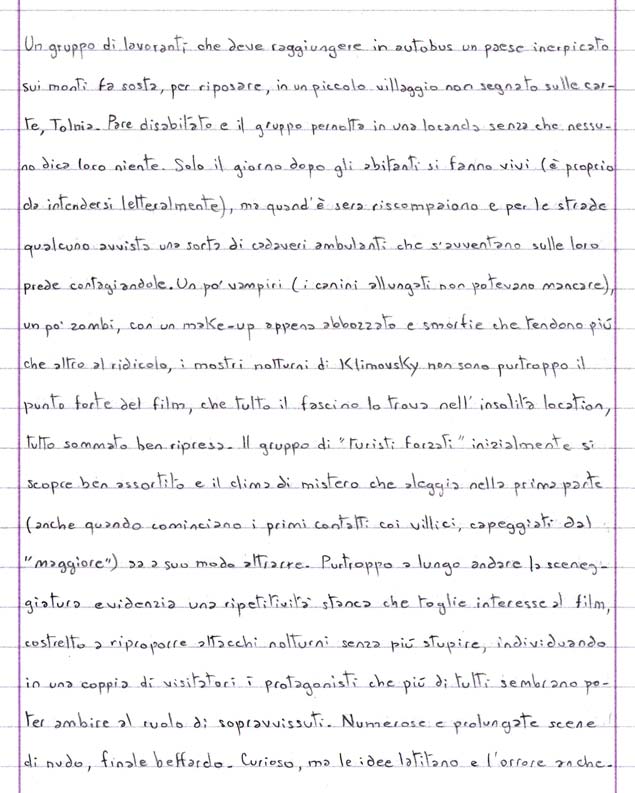 Un gruppo di lavoranti che deve raggiungere in autobus un paese inerpicato
sui monti fa sosta, per riposare, in un piccolo villaggio non segnato sulle car-
te, Tolnia. Pare disabitato e il gruppo pernotta in una locanda senza che nessu-
no dica loro niente. Solo il giorno dopo gli abitanti si fanno vivi (è proprio
da intendersi letteralmente), ma quand'è sera riscompaiono e per le strade
qualcuno avvista una sorta di cadaveri ambulanti che s'avventano sulle loro
prede contagiandole. Un po' vampiri (i canini allungati non potevano mancare),
un po' zombi, con un make-up appena abbozzato e smorfie che tendono più
che altro al ridicolo, i mostri notturni di Klimovsky non sono purtroppo il
punto forte del film, che tutto il fascino lo trova nell'insolita location,
tutto sommato ben ripresa. Il gruppo di "turisti forzati" inizialmente si
scopre ben assortito e il clima di mistero che aleggia nella prima parte
(anche quando cominciano i primi contatti coi villici, capeggiati dal
"maggiore") sa a suo modo attrarre. Purtroppo a lungo andare la sceneg-
giatura evidenzia una ripetitività stanca che toglie interesse al film,
costretto a riproporre attacchi notturni senza più stupire, individuando
in una coppia di visitatori i protagonisti che più di tutti sembrano po-
ter ambire al ruolo di sopravvissuti. Numerose e prolungate scene
di nudo, finale beffardo. Curioso, ma le idee latitano e l'orrore anche.